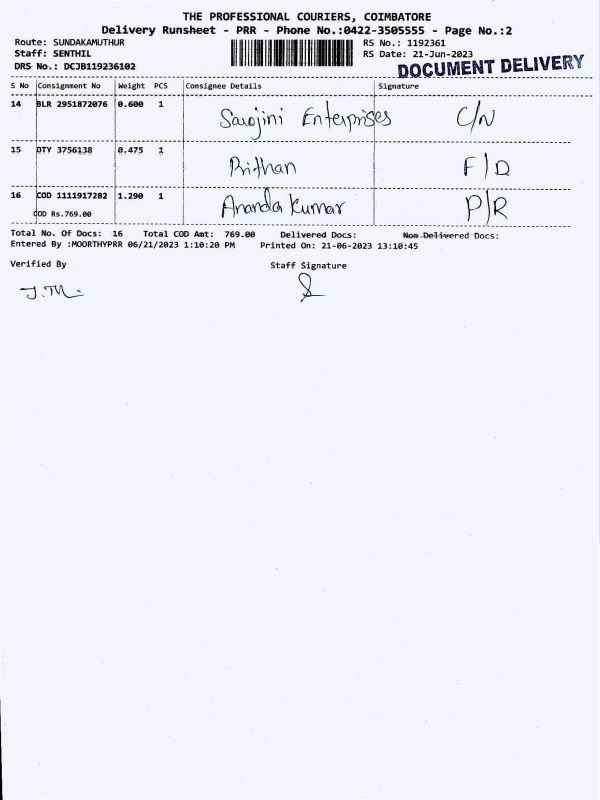 THE PROFESSIONAL COURIERS, COIMBATORE
Delivery Runsheet - PRR - Phone No.:0422-3505555 - Page No.:2
Route: SUNDAKAMUTHUR RS No.: 1192361
Staff: SENTHIL RS Date: 21-Jun-2023
DRS No.: DCJB119236102 DOCUMENT DELIVERY
S No Consignment No Weight PCS Consignee Details Signature
14 BLR 2951872076 0.600 1 Sarojini Enterprises C/N
15 DTY 3756138 0.475 1 Prithan F|D
16 COD 1111917282 1.290 1 Ananda Kumar P/R
COD Rs.769.00
Total No. Of Docs: 16 Total COD Amt: 769.00 Delivered Docs: Non Delivered Docs:
Entered By :MOORTHYPRR 06/21/2023 1:10:20 PM Printed On: 21-06-2023 13:10:45
Verified By Staff Signature